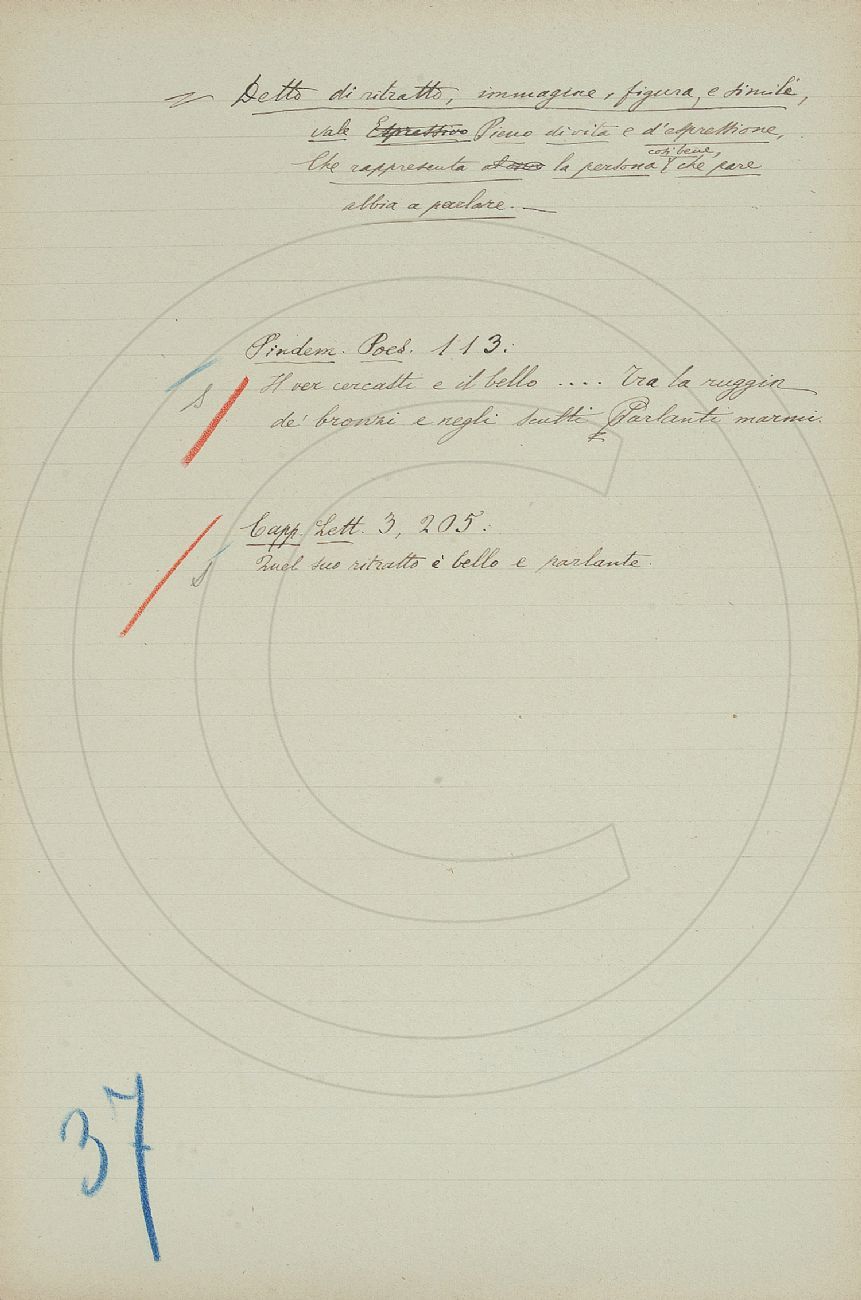 Detto di ritratto, immagine, figura, e simile,
vale Espressivo Pieno di vita e d'espressione,
così bene,
Che rappresenta la persona che pare
abbia a parlare. —
Pindem. Poes. 113.
Il ver cercasti e il bello .... tra la ruggin
de' bronzi e negli scutti Parlanti marmi.
S
Capp. Lett. 3, 205.
Quel suo ritratto è bello e parlante.
S
37